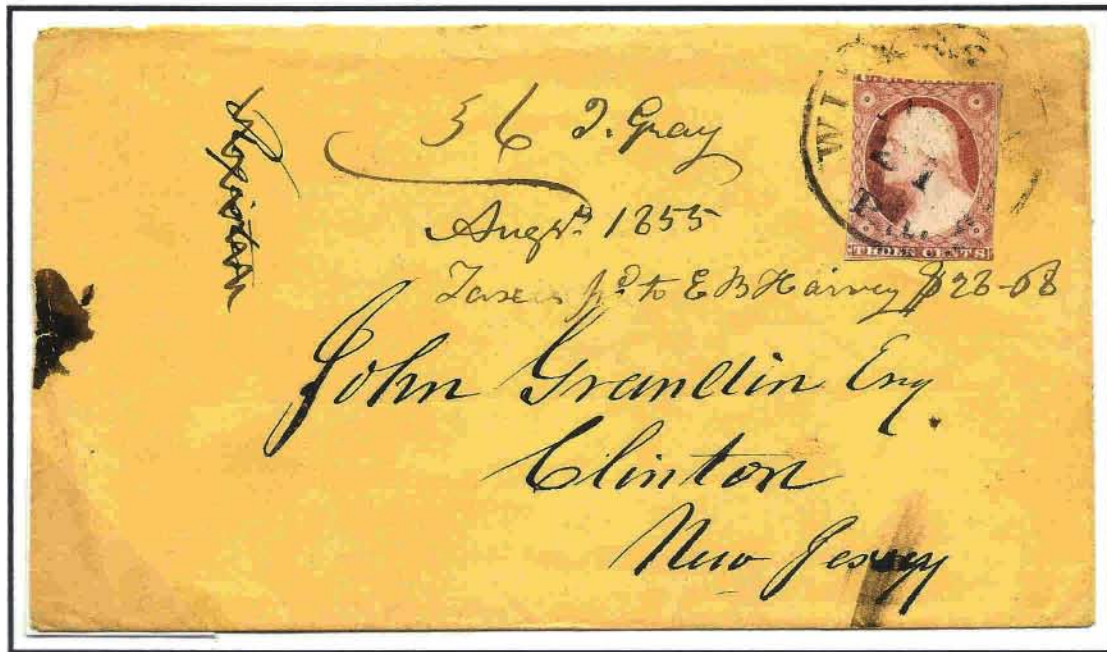 J. Gray
Augst 1855
Taxes pd to E B Harvey $26-68
John Grandin Esq
Clinton
New Jersey
WI
21
THREE CENTS